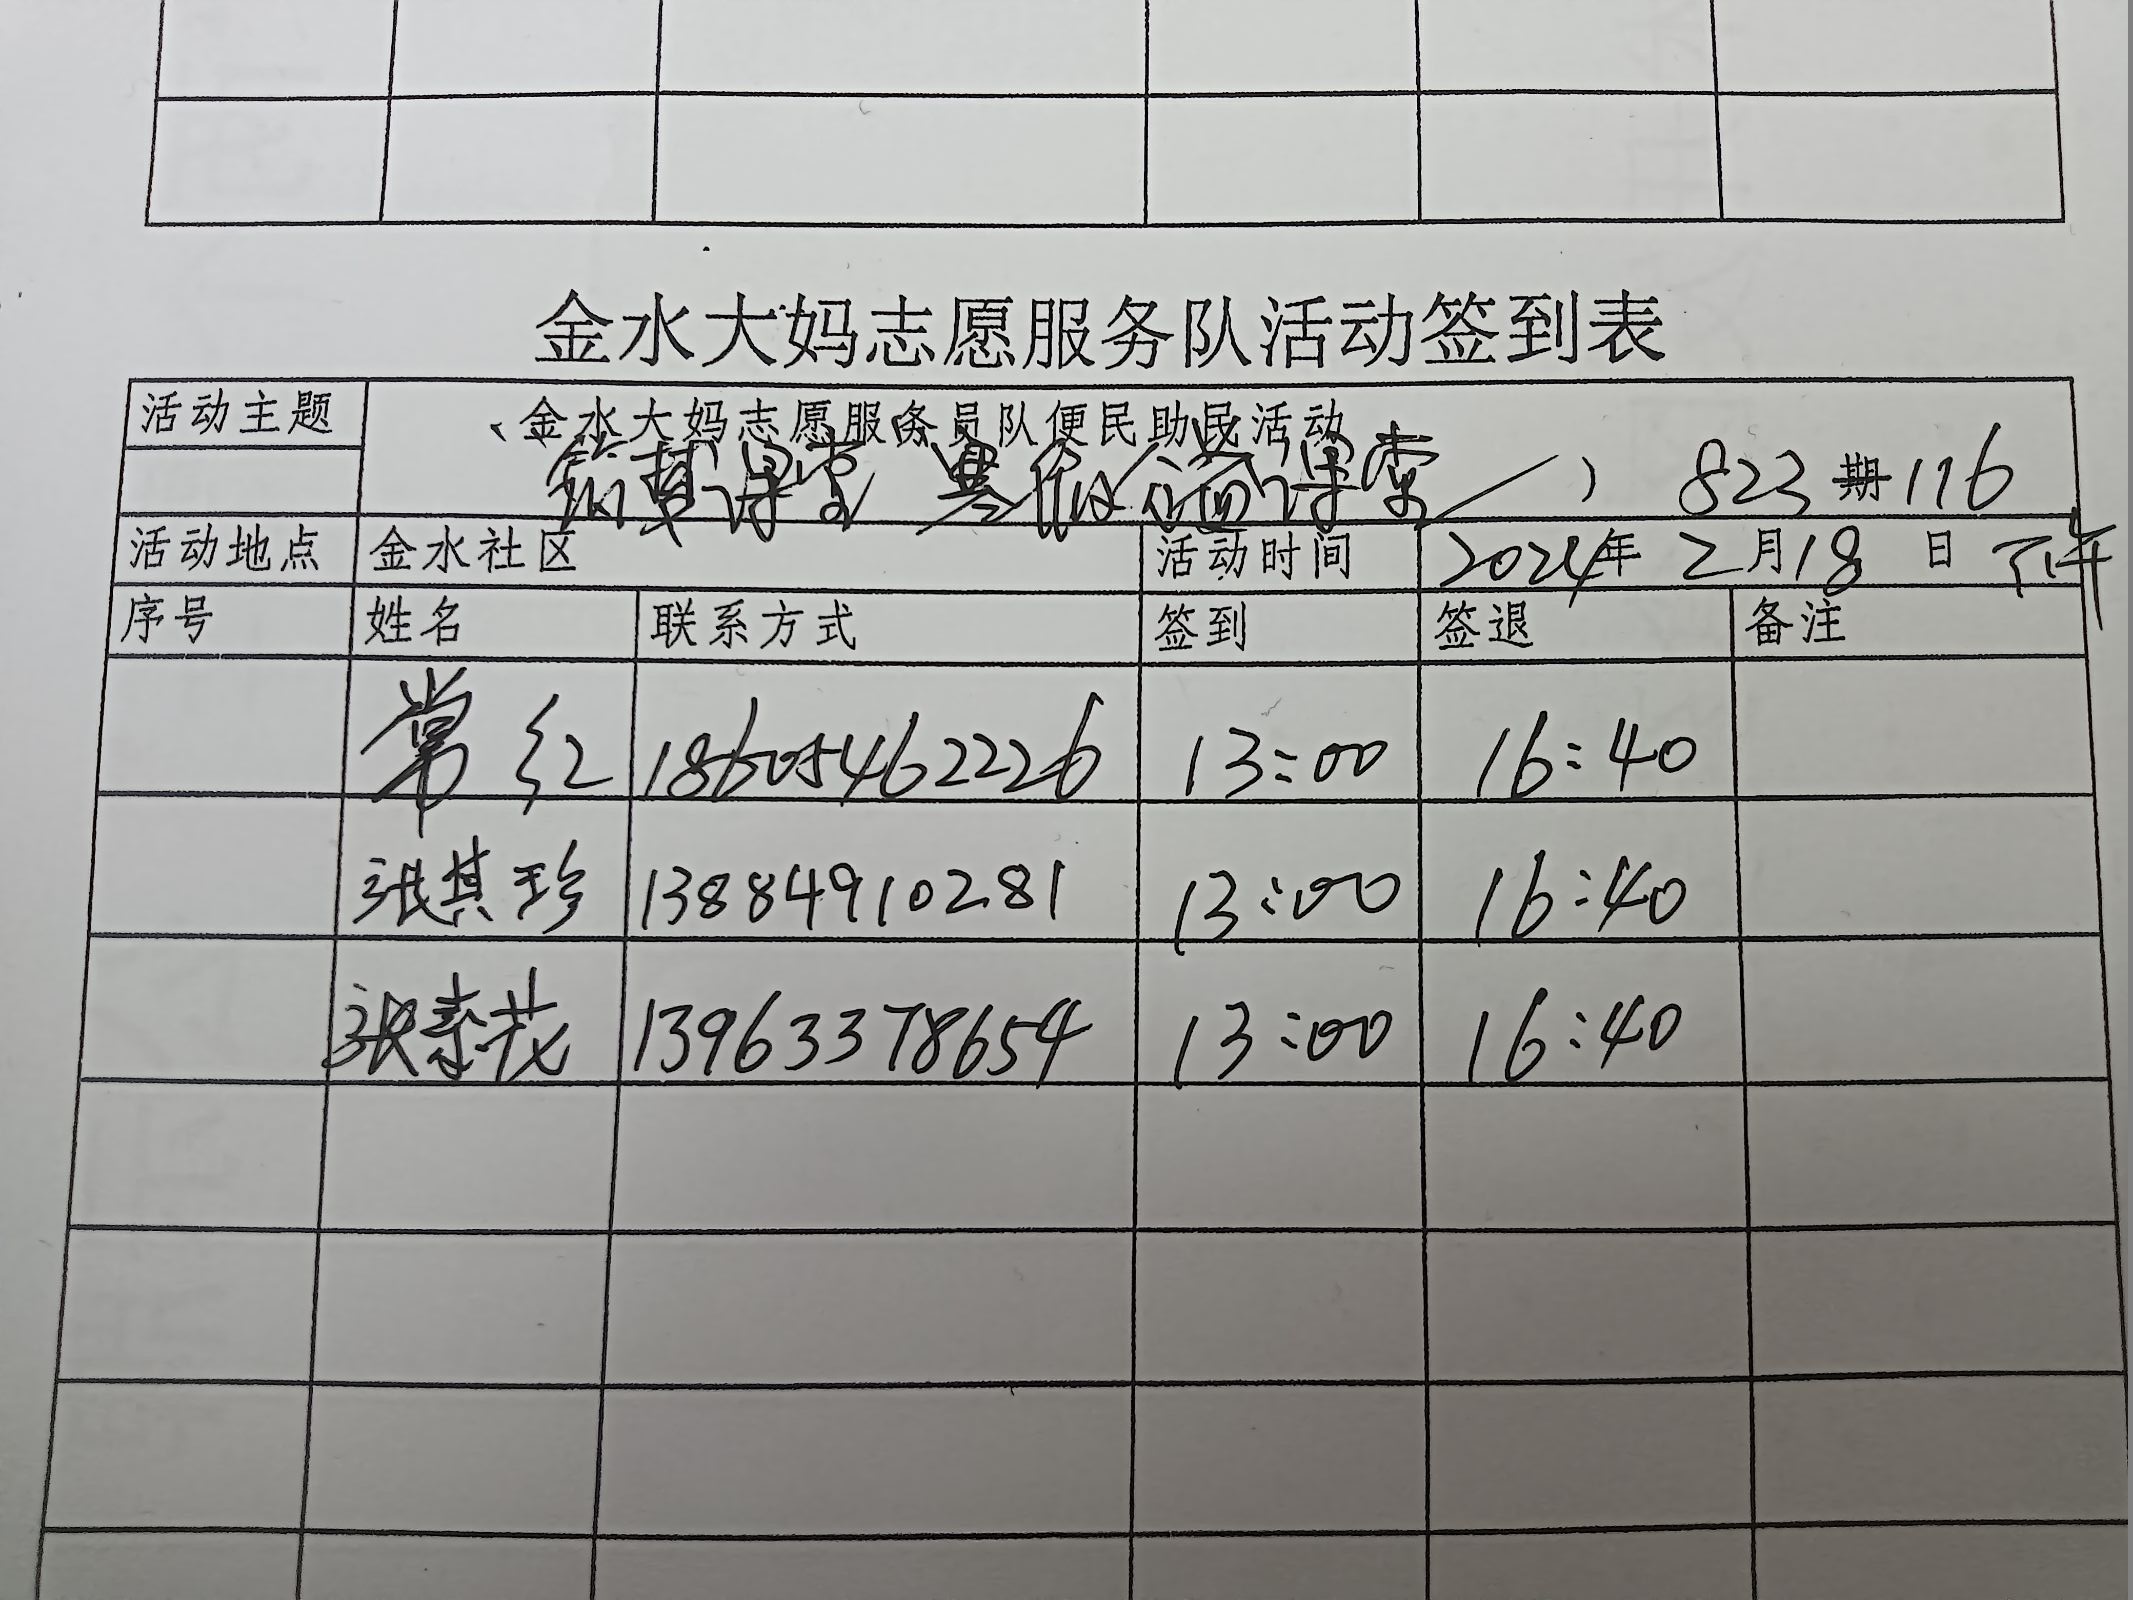 金水大妈志愿服务队活动签到表
活动主题 金水大妈志愿服务员队便民助民活动
课堂 寒假公益课堂 823期116
活动地点 金水社区 活动时间 2024年2月18日下午
序号 姓名 联系方式 签到 签退 备注
常红 18605462226 13:00 16:40
张其珍 13884910281 13:00 16:40
张素花 13963378654 13:00 16:40